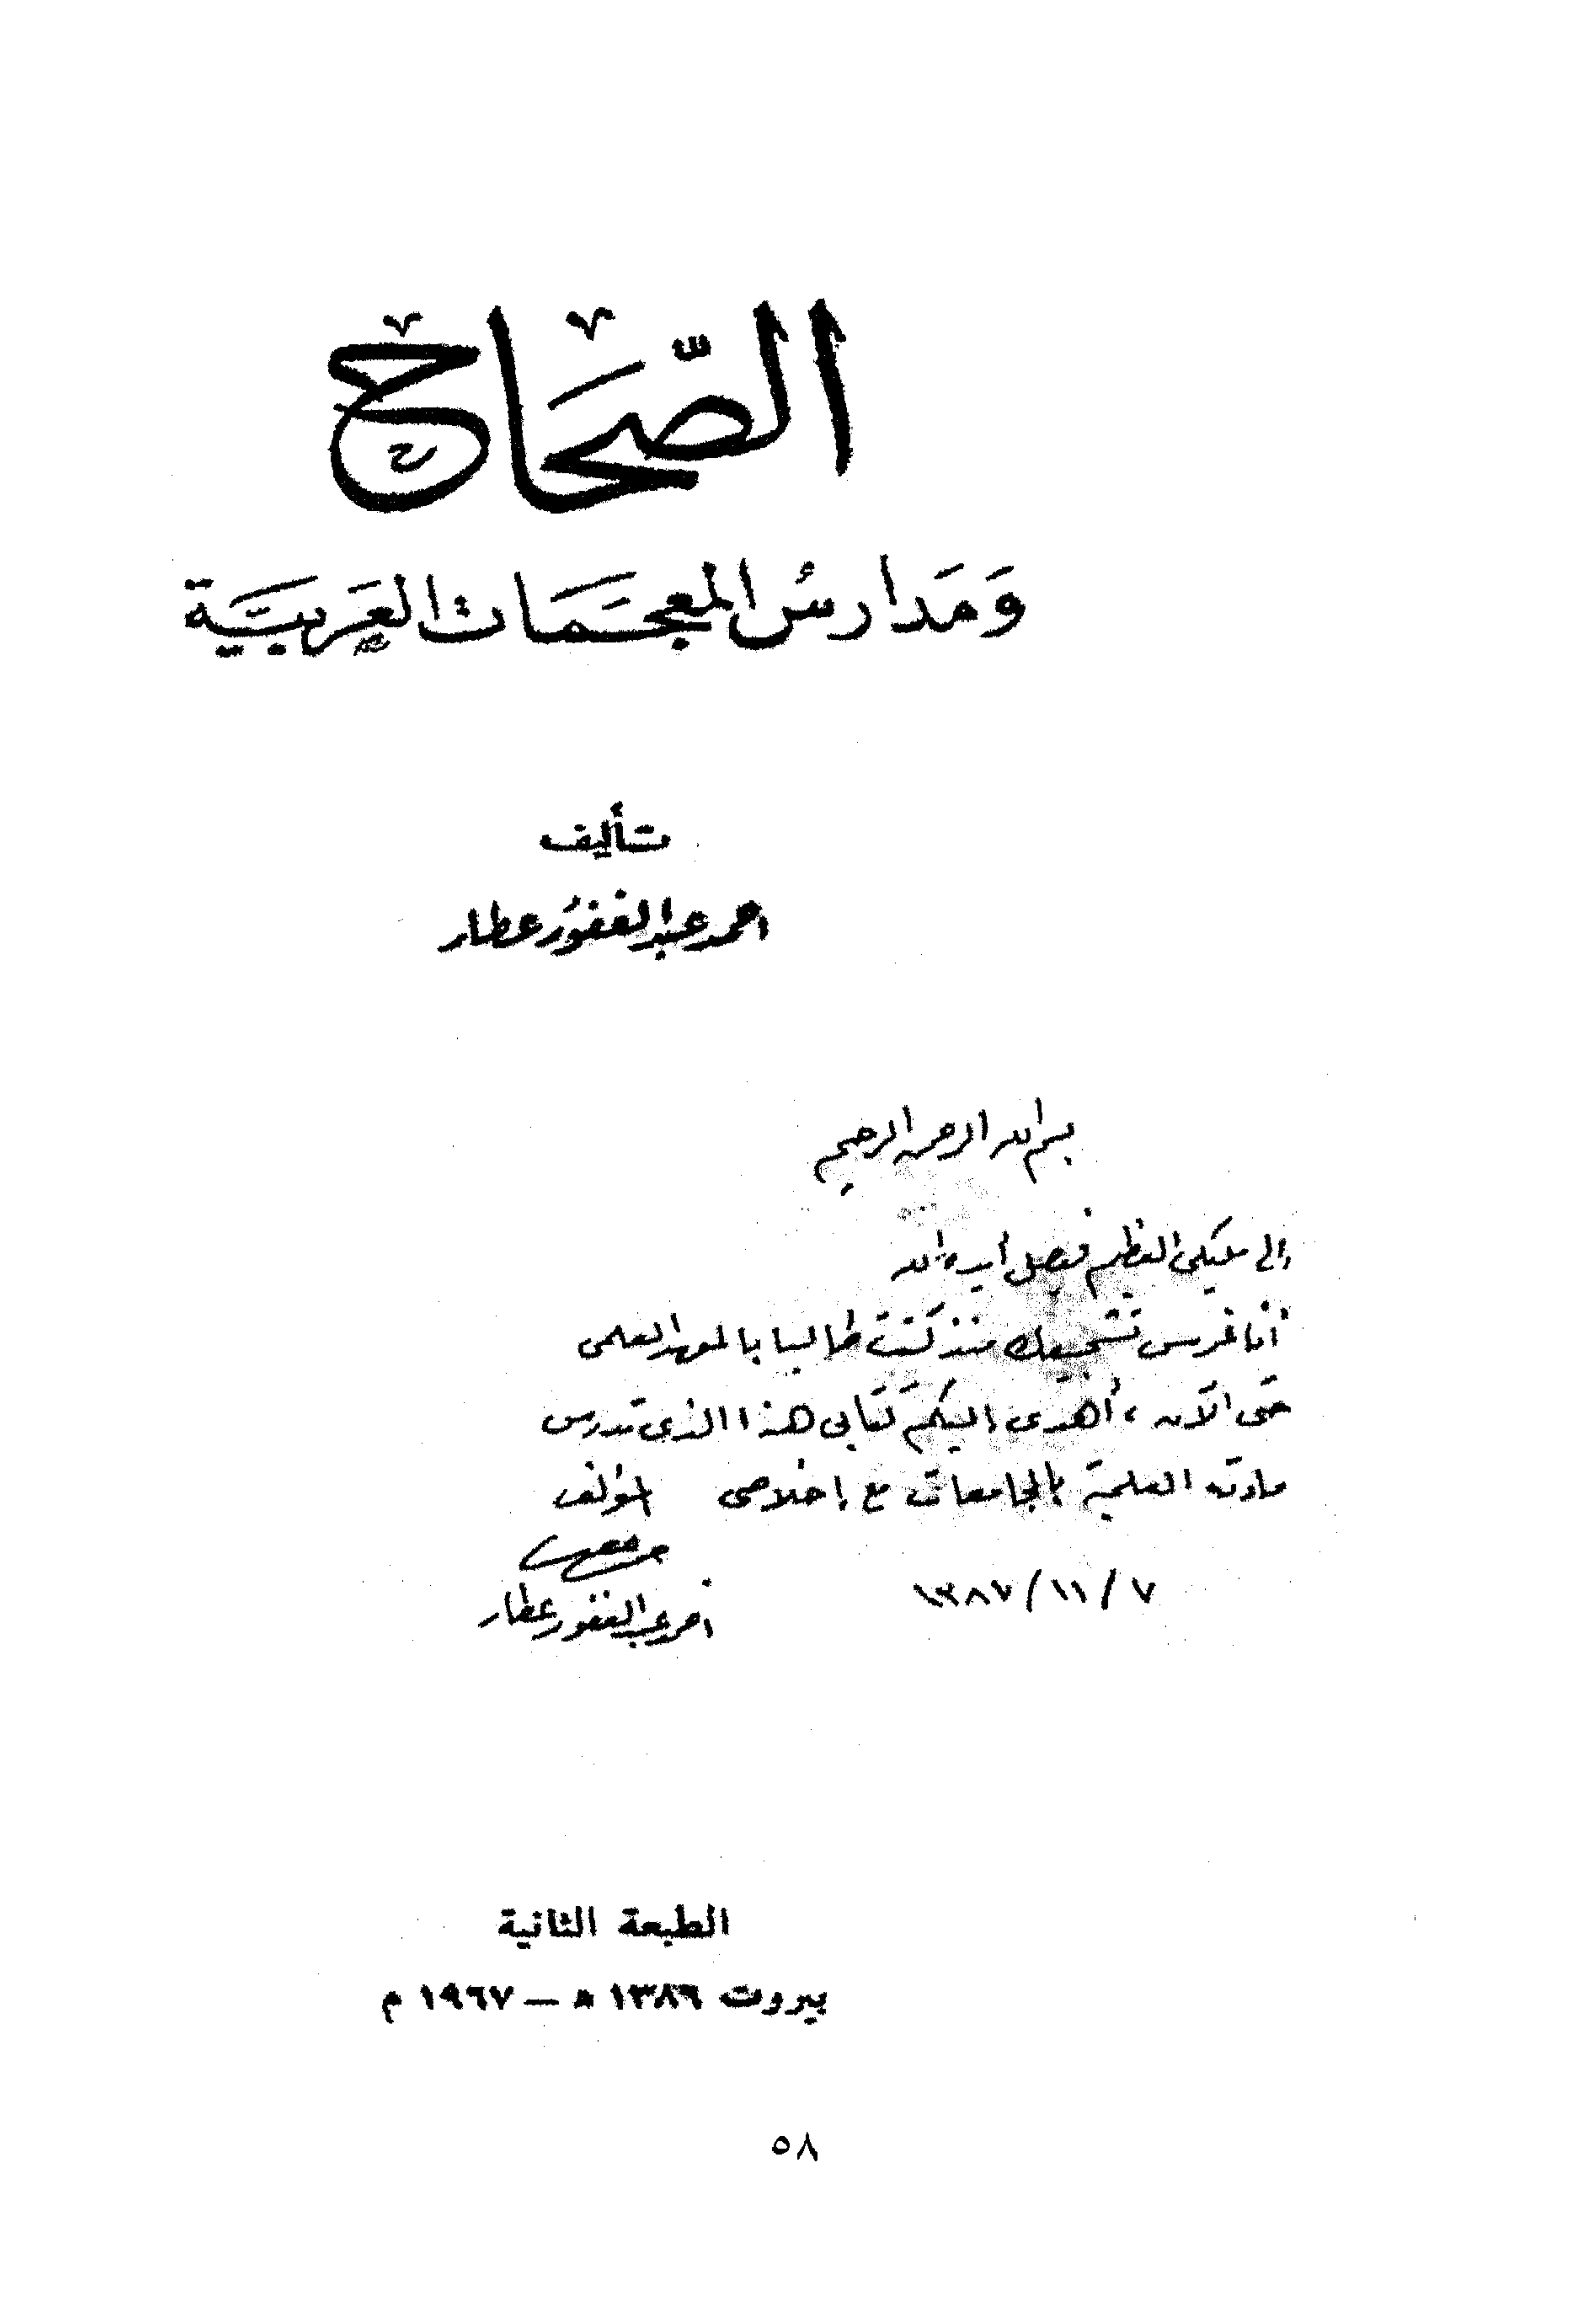 الصّحَاح
وَمَدارسُ المعجَمَات العَربيَّة
تأليف
احمد عبد الغفور عطار
بسم الله الرحمن الرحيم
إلى مليكى العظيم فيصل أيده الله
أنا غرس تشجيعك منذ كنت طالبا بالمعهد العلمى
حتى الآن ، أهدى إليكم كتابى هذا الذى تدرس
مادته العلمية بالجامعات مع إخلاصى المؤلف
أحمد عبد الغفور عطار
٧ / ١١ / ١٣٨٧
الطبعة الثانية
بيروت ١٣٨٦ هـ – ١٩٦٧ م
٥٨